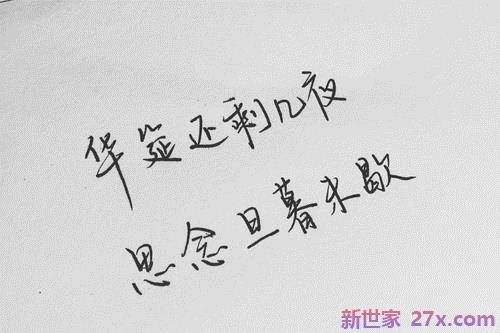 华筵还剩几夜
思念旦暮未歇
新世家 27x.com